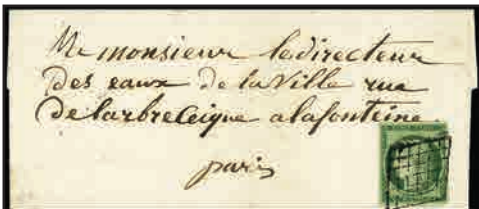 Mr monsieur ledirecteur
des eaux de la ville rue
de larbreceique a lafonteine
paris